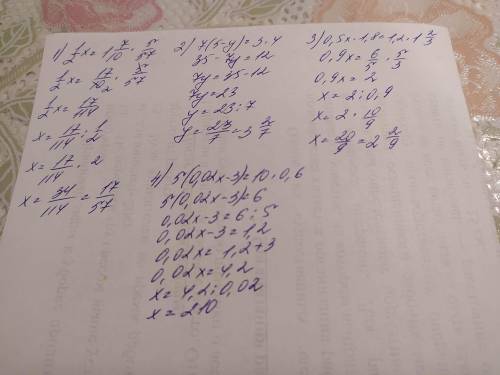 1) 1/2 x = 1 7/10 · 5/57
1/2 x = 17/10₂ · 5/57
1/2 x = 17/114
x = 17/114 : 1/2
x = 17/114 · 2
x = 34/114 = 17/57
2) 7(5-y) = 3·4
35 - 7y = 12
7y = 35-12
7y = 23
y = 23:7
y = 23/7 = 3 2/7
3) 0,5x·1,8 = 1,2·1 2/3
0,9x = 6/5 · 5/3
0,9x = 2
x = 2:0,9
x = 2 · 10/9
x = 20/9 = 2 2/9
4) 5(0,02x-3) = 10·0,6
5(0,02x-3) = 6
0,02x-3 = 6:5
0,02x-3 = 1,2
0,02x = 1,2+3
0,02x = 4,2
x = 4,2:0,02
x = 210